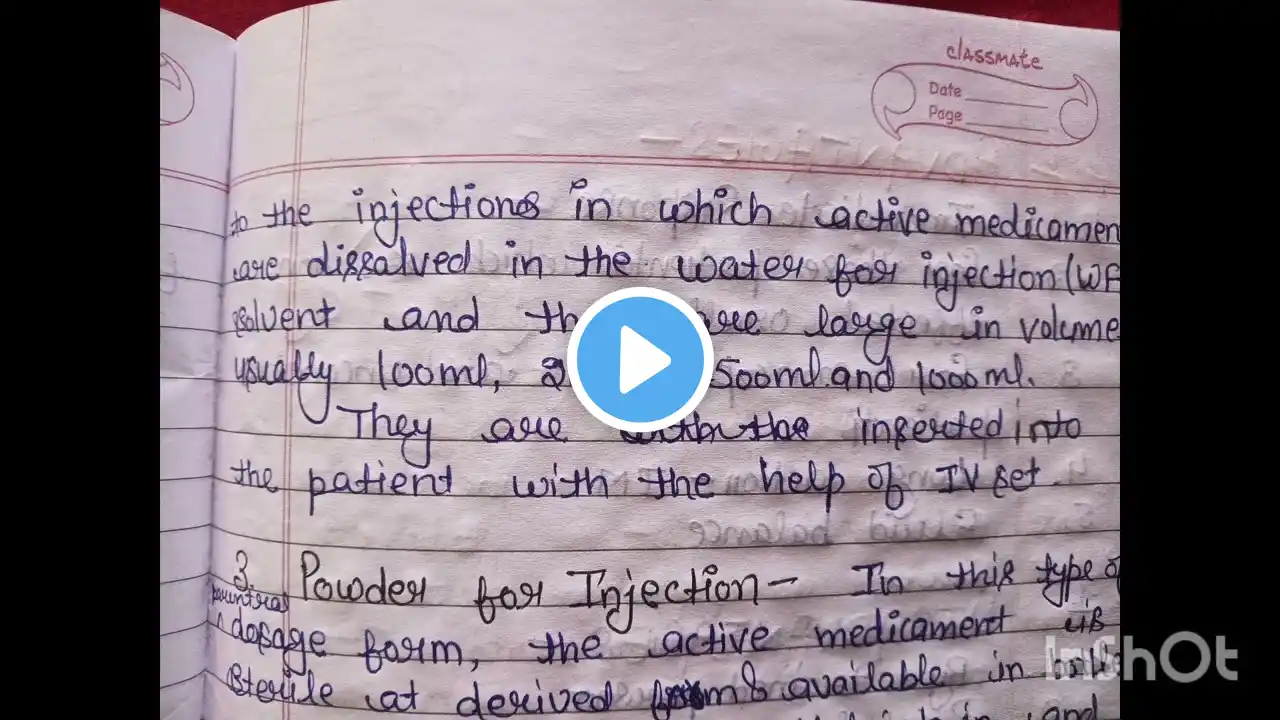 classmate
Date
Page
to the injections in which active medicamen
are dissalved in the water for injection (WF
solvent and th are large in volume
usually 100ml, 2 500ml. and 1000 ml.
They are inserted into
the patient with the help of IV set.
3. Powder for Injection - In this type of
parentral
dosage form, the active medicament is
sterile at derived form & available in
and
InShOt